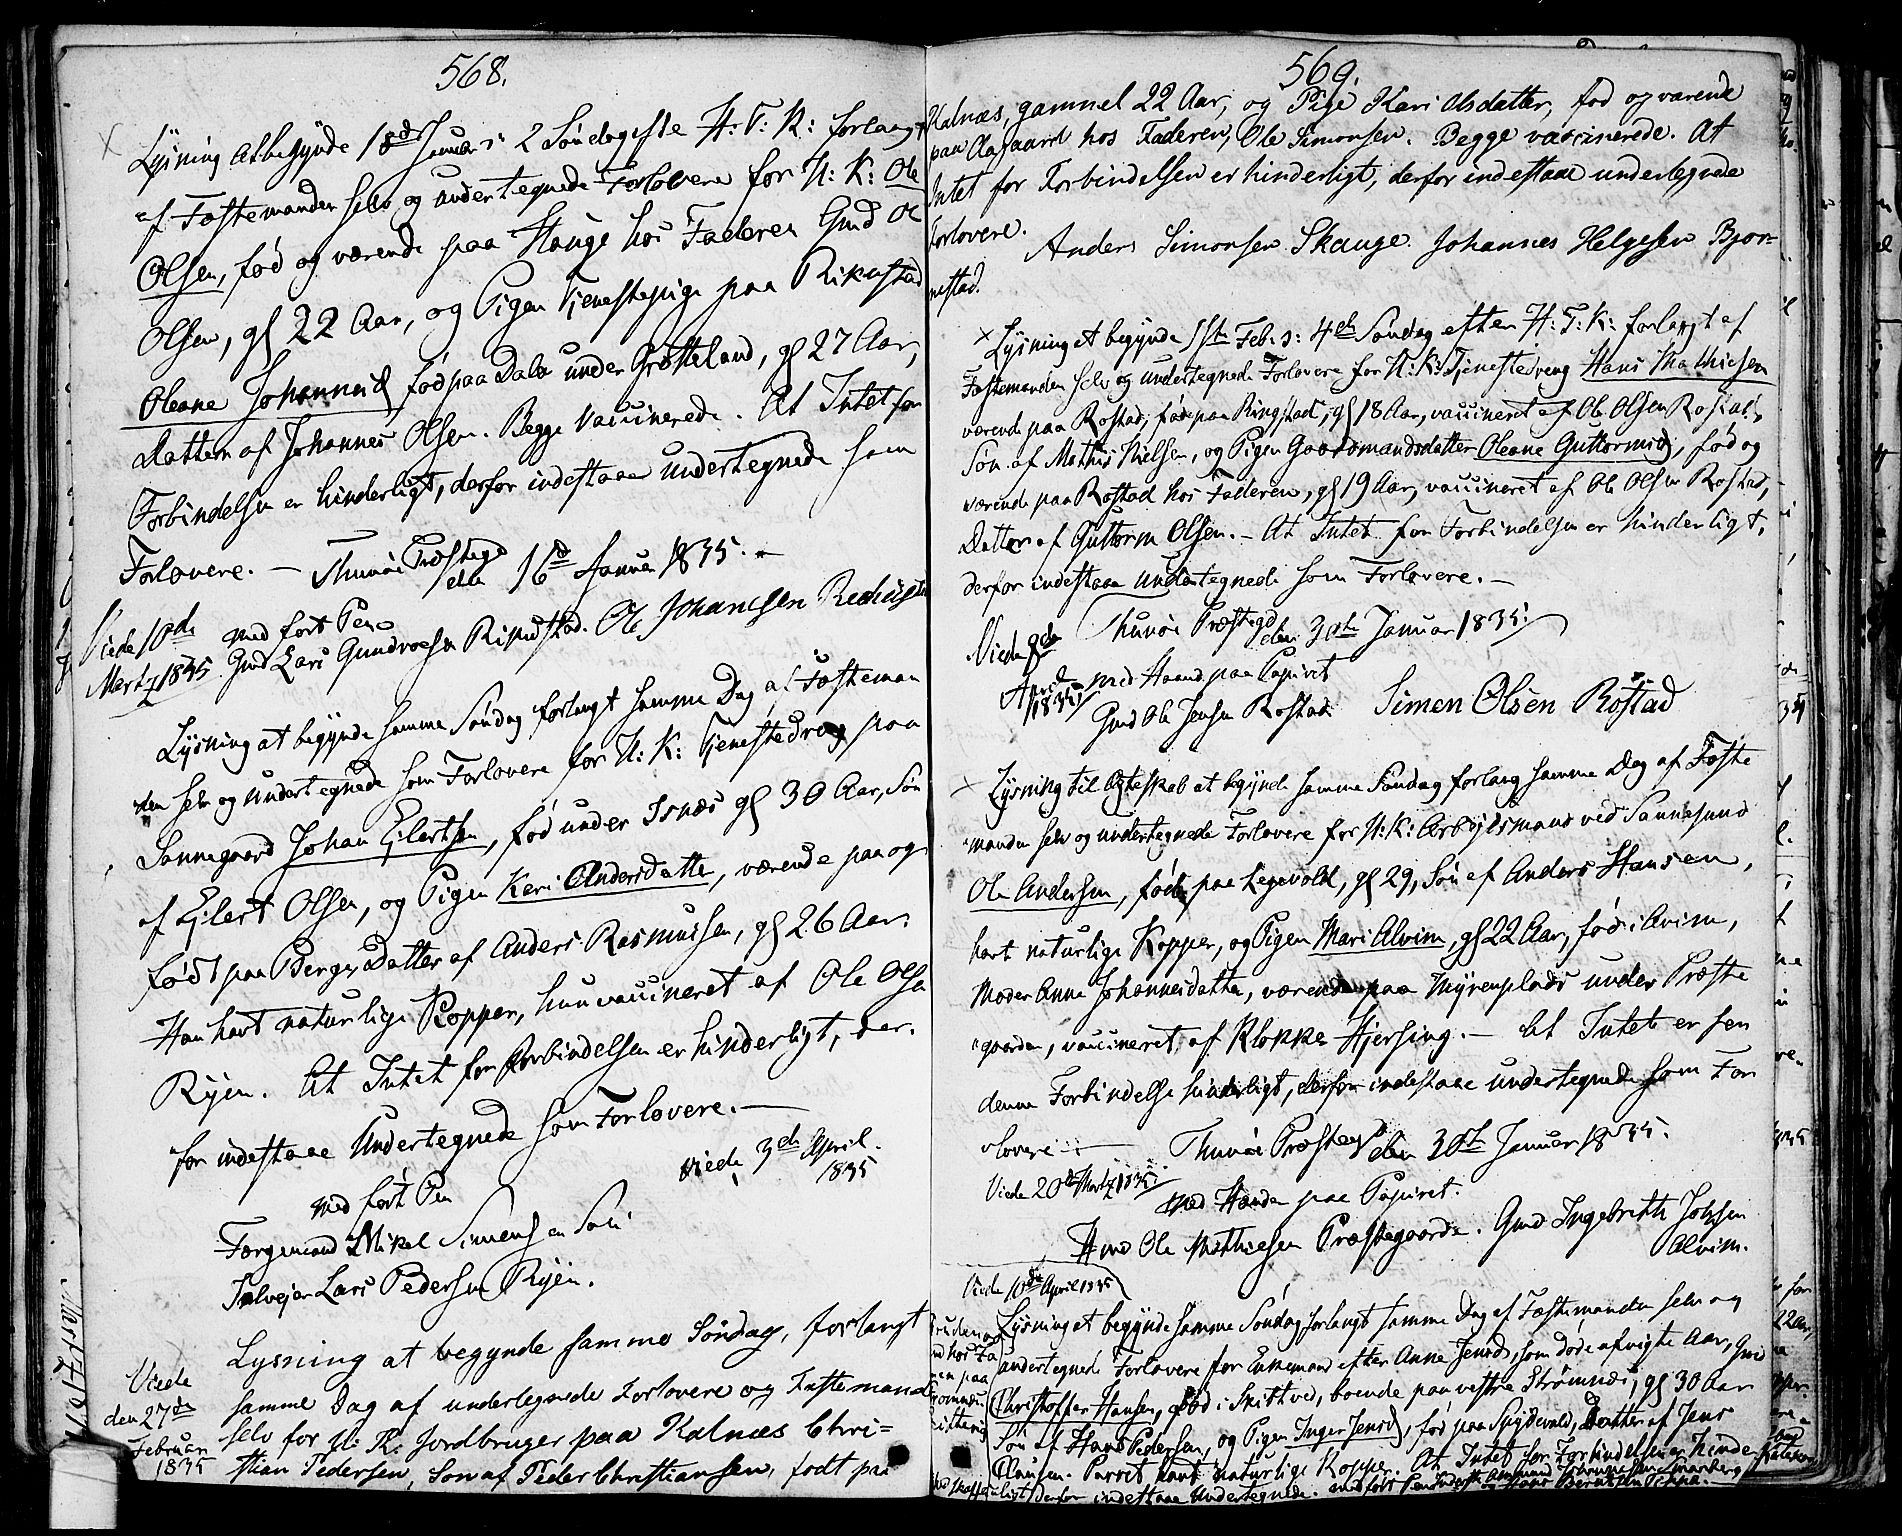 568.
Lysning at begynde 18de Januar: 2 Søndag efter H: T: K: forlangt
af Fæstemanden selv og undertegnede Forlovere for U: K: Ole
Olsen, fød og værende paa Hauge hos Faderen Gmd Ole
Olsen, gl 22 Aar, og Pigen Tjenestepige paa Rikustad
Oleane Johannesd, fød paa Dale under Grøtteland, gl 27 Aar,
Datter af Johannes Olsen. Begge Vaccinerede. At Intet for
Forbindelsen er hinderligt, derfor indestaae undertegnede som
Forlovere. — Thunøe Præstegd den 16de Januar 1835. —
Viede 10de Martz 1835
med ført Pen
Gmd Lars Gundroesen Rikustad. Ole Johansen
Lysning at begynde samme Søndag forlangt samme Dag af Fæsteman
den selv og undertegnede som Forlovere for U: K: Tjenestedreng paa
Sannegaard Johan Eilertsen, fød under Isnæs gl 30 Aar, Søn
af Eilert Olsen, og Pigen Kari Andersdatter, værende paa og
født paa Berge, Datter af Anders Rasmussen, gl 26 Aar.
Han havt naturlige Kopper, hun vaccineret af Ole Olsen
Ryen. At Intet for Forbindelsen er hinderligt, der-
for indestaae Undertegnede som Forlovere. —
Viede 3de April 1835
med ført Pen
Færgemand Mikel Simensen
Selvejer Lars Pedersen Ryen.
Viede den 27de Februar 1835
Lysning at begynde samme Søndag, forlangt
samme Dag af undertegnede Forlovere og Fæstemand
selv for U: K: Jordbruger paa Kalnæs Chri=
stian Pedersen, Søn af Peder Christiansen, født paa
569.
Kalnæs, gammel 22 Aar, og Pige Kari Olsdatter, fød og værende
paa Aagaard hos Faderen, Ole Simonsen. Begge vaccinerede. At
Intet for Forbindelsen er hinderligt, derfor indestaae undertegnede
forlovere.
Anders Simonsen Skauge. Johannes Helgesen Bjør=
nestad.
Lysning at begynde 1ste Feb: s: 4de Søndag efter H: T: K: forlangt af
Fæstemanden selv og undertegnede Forlovere for U: K: Tjenestedreng Hans Mathiesen
værende paa Rostad, fød paa Ringstad, gl 18 Aar, vaccineret af Ole Olsen Rostad,
Søn af Mathis Nielsen, og Pigen Gaardmandsdatter Oleane Guttormsd, fød og
værende paa Rostad hos Faderen, gl 19 Aar, vaccineret af Ole Olsen Rostad,
Datter af Guttorm Olsen. — At Intet for Forbindelsen er hinderligt,
derfor indestaae Undertegnede som Forlovere. —
Thunøe Præstegd den 30te Januar 1835.
Viede April 1835
med Haand paa Papiret
Gmd Ole Jensen Rostad. Simen Olsen Røstad
Lysning til Egteskab at begynde samme Søndag forlang samme Dag af Fæste
manden selv og undertegnede Forlovere for U: K: Arbejdsmand ved Sannesund
Ole Andersen, fød paa Legevold, gl 29, Søn af Anders Hansen,
havt naturlige Kopper, og Pigen Mari Alvim, gl 22 Aar, fød i Alvim,
Moder Anne Johannesdatter, værende paa Myrenplads under Præste
gaarden, vaccineret af Klokker Hjersing. — At Intet er for
denne Forbindelse hinderligt, derfor indestaae undertegnede som For
lovere. — Thunøe Præstegd den 30te Januar 1835.
Viede 20de Martz 1835
Med Handen paa Papiret.
Hmd Ole Mathiesen Præstegaarde. Gmd Ingebreth Johsen
Alvim.
Viede 10de April 1835
Lysning at begynde samme Søndag forlangt samme Dag af Fæstemanden selv og
undertegnede Forlovere for Enkemand efter Anne Jensd, som døde afvigte Aar, Gmd
Christoffer Hansen, fød i Skibtved, boende paa vestre Strømnæs, gl 30 Aar
Søn af Hans Pedersen, og Pigen Inger Jensd, fød paa Spydevold, Datter af Jens
Clausen. Parret havt naturlige Kopper. At Intet for Forbindelsen er hinder
ligt derfor indestaae Undertegnede.